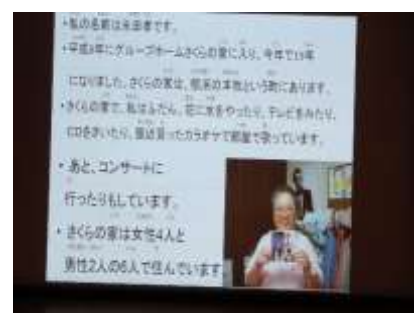 ・私の名前は永田孝です。
・平成8年にグループホームさくらの家に入り、今年で19年
になりました。さくらの家は、根糸の本牧という町にあります。
・さくらの家で、私はふだん、花に水をやったり、テレビをみたり、
CDをきいたり、最近買ったカラオケで部屋で歌っています。
・あと、コンサートに
行ったりもしています。
・さくらの家は女性4人と
男性2人の6人で住んでいます